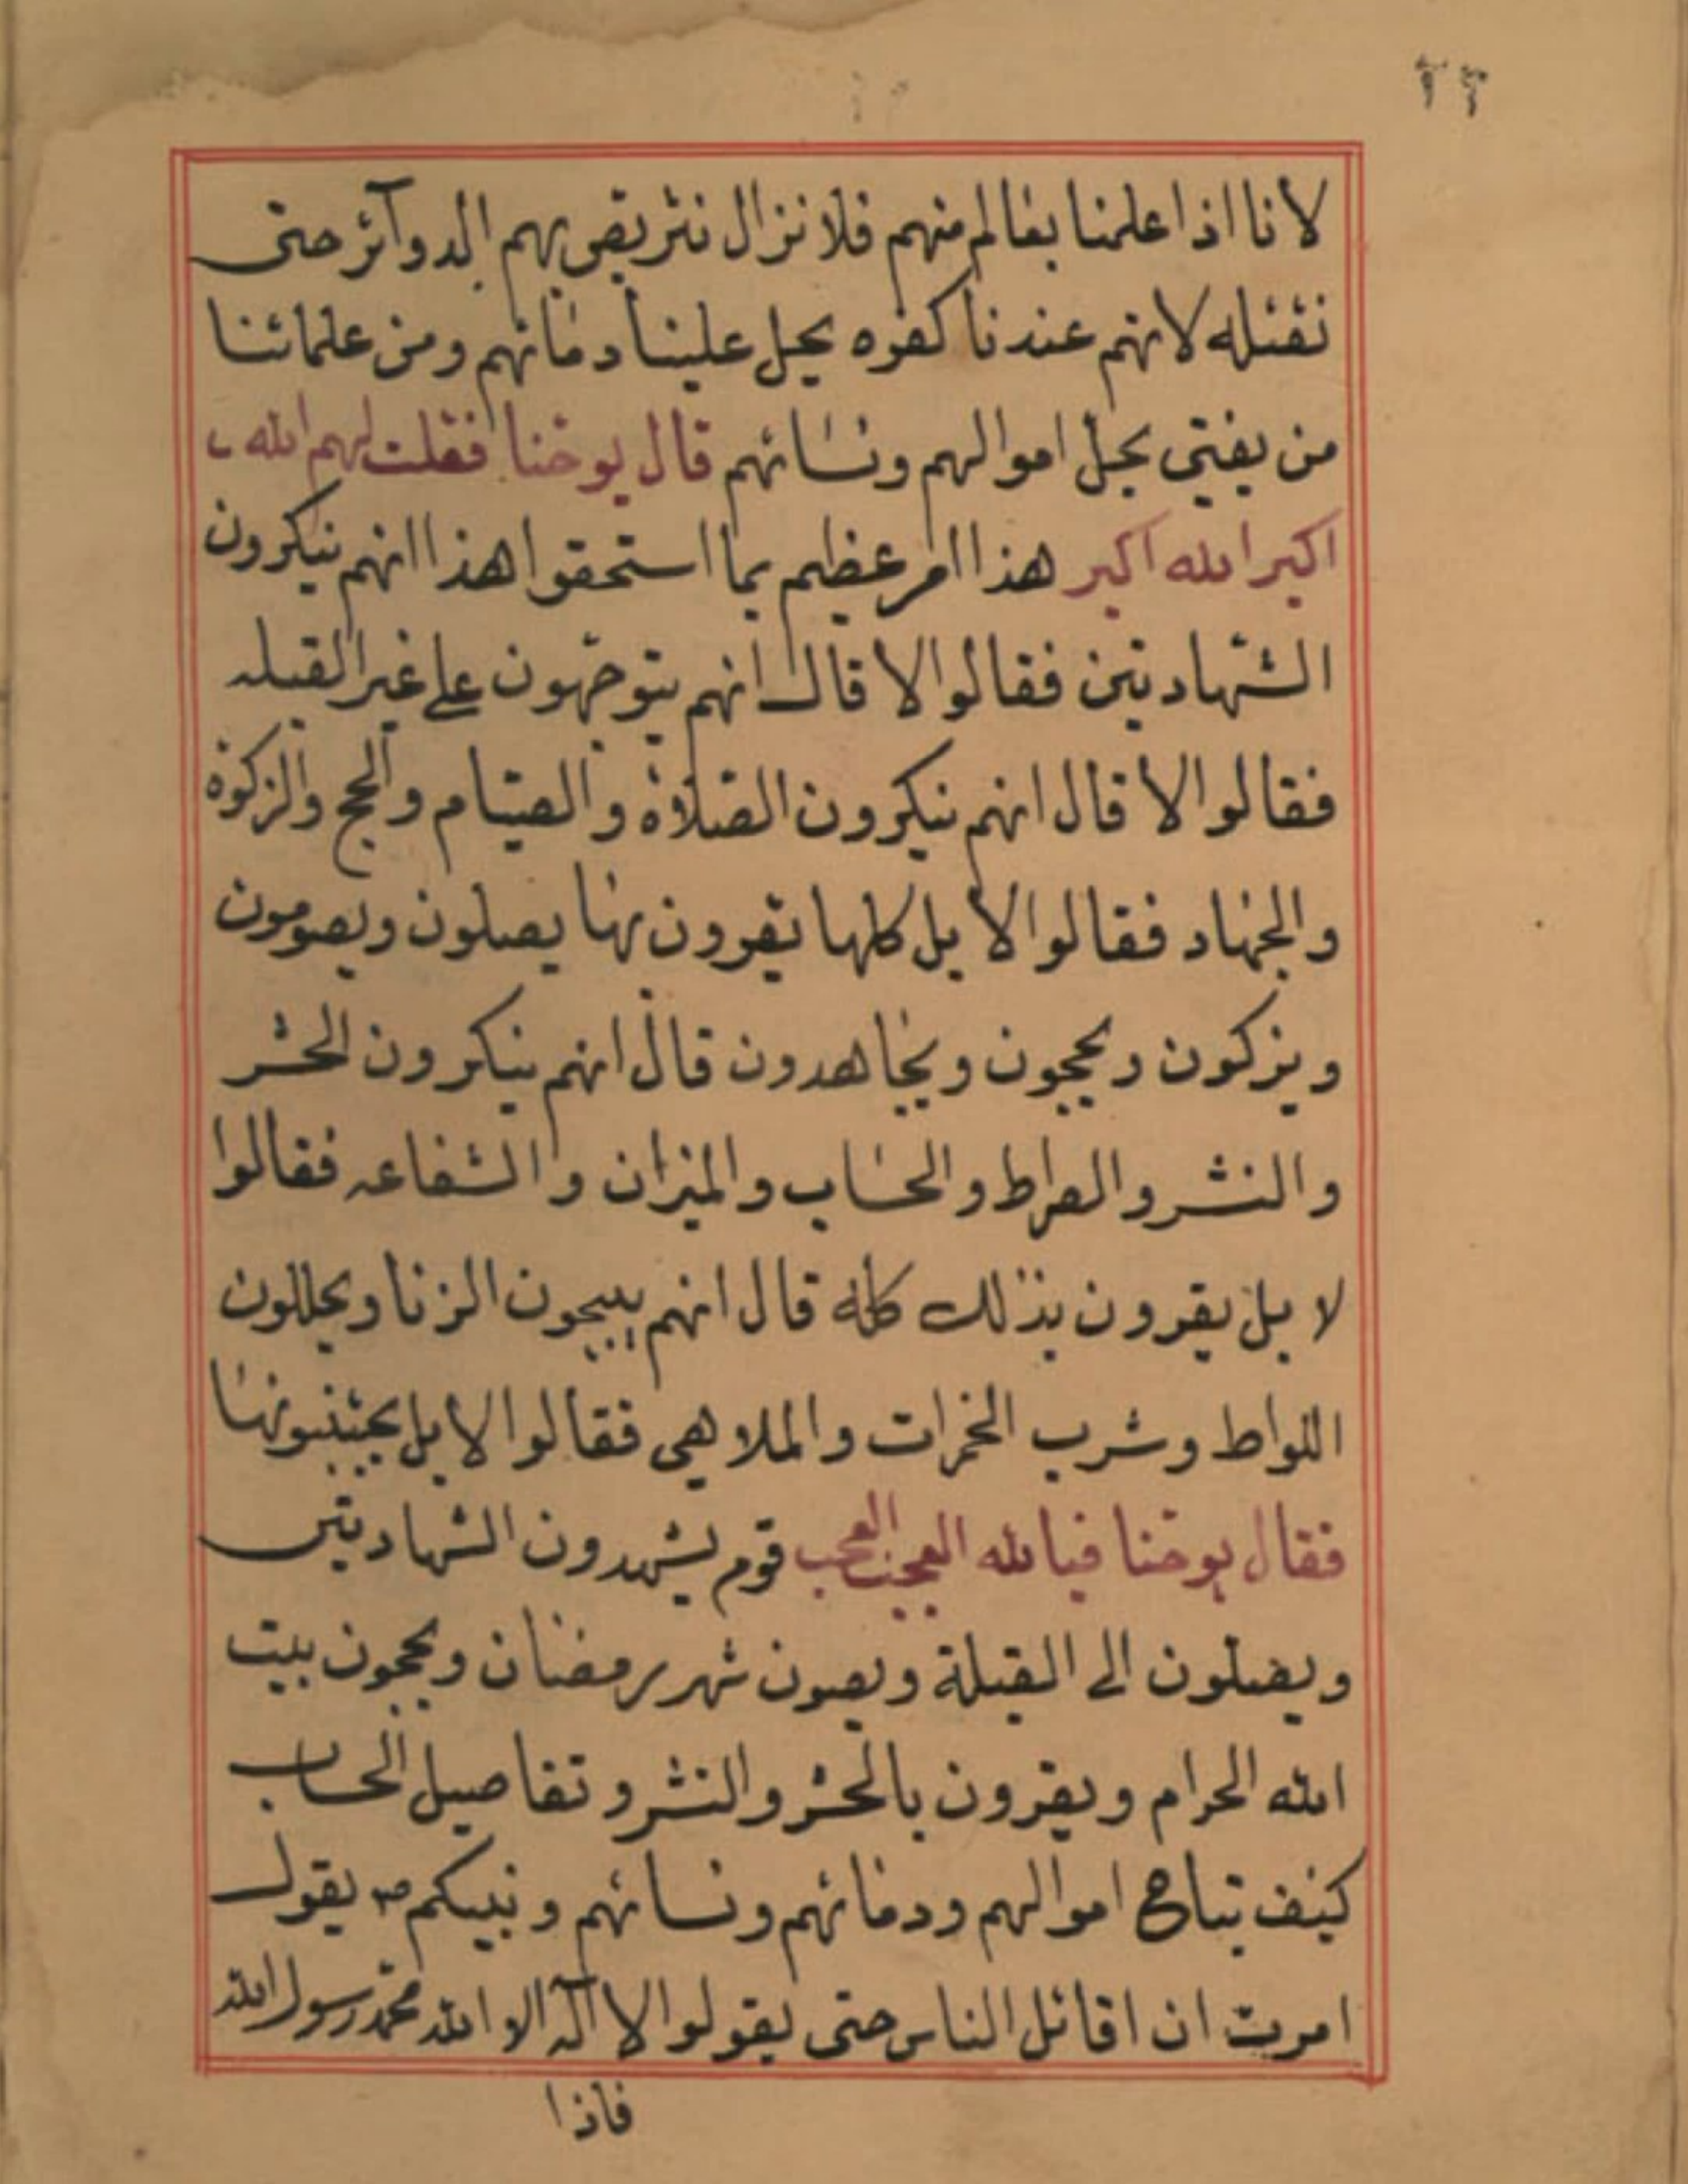 لانا اذا علمنا بعالم منهم فلا نزال نتربص بهم الدوآئر حتى
نقتله لانهم عندنا كفره يحل علينا دمائهم ومن علمائنا
من يفتي بحل اموالهم ونسائهم قال يوحنا فقلت لهم الله
اكبر الله اكبر هذا امر عظيم بما استحقوا هذا انهم ينكرون
الشهادتين فقالوا لا قال انهم يتوجهون على غير القبله
فقالوا لا قال انهم ينكرون الصلاة والصيام والحج والزكوة
والجهاد فقالوا لا بل كلها يقرون بها يصلون ويصومون
ويزكون ويحجون ويجاهدون قال انهم ينكرون الحشر
والنشر والصراط والحساب والميزان والشفاعه فقالوا
لا بل يقرون بذلك كله قال انهم يبيحون الزنا ويحللون
اللواط وشرب الخمرات والملاهي فقالوا لا بل يجتنبونها
فقال يوحنا فيا لله العجب العجب قوم يشهدون الشهادتين
ويصلون الى القبلة ويصون شهر رمضان ويحجون بيت
الله الحرام ويقرون بالحشر والنشر وتفاصيل الحساب
كيف تباح اموالهم ودمائهم ونسائهم ونبيكم ص يقول
امرت ان اقاتل الناس حتى يقولوا لا اله الا الله محمد رسول الله
فاذا